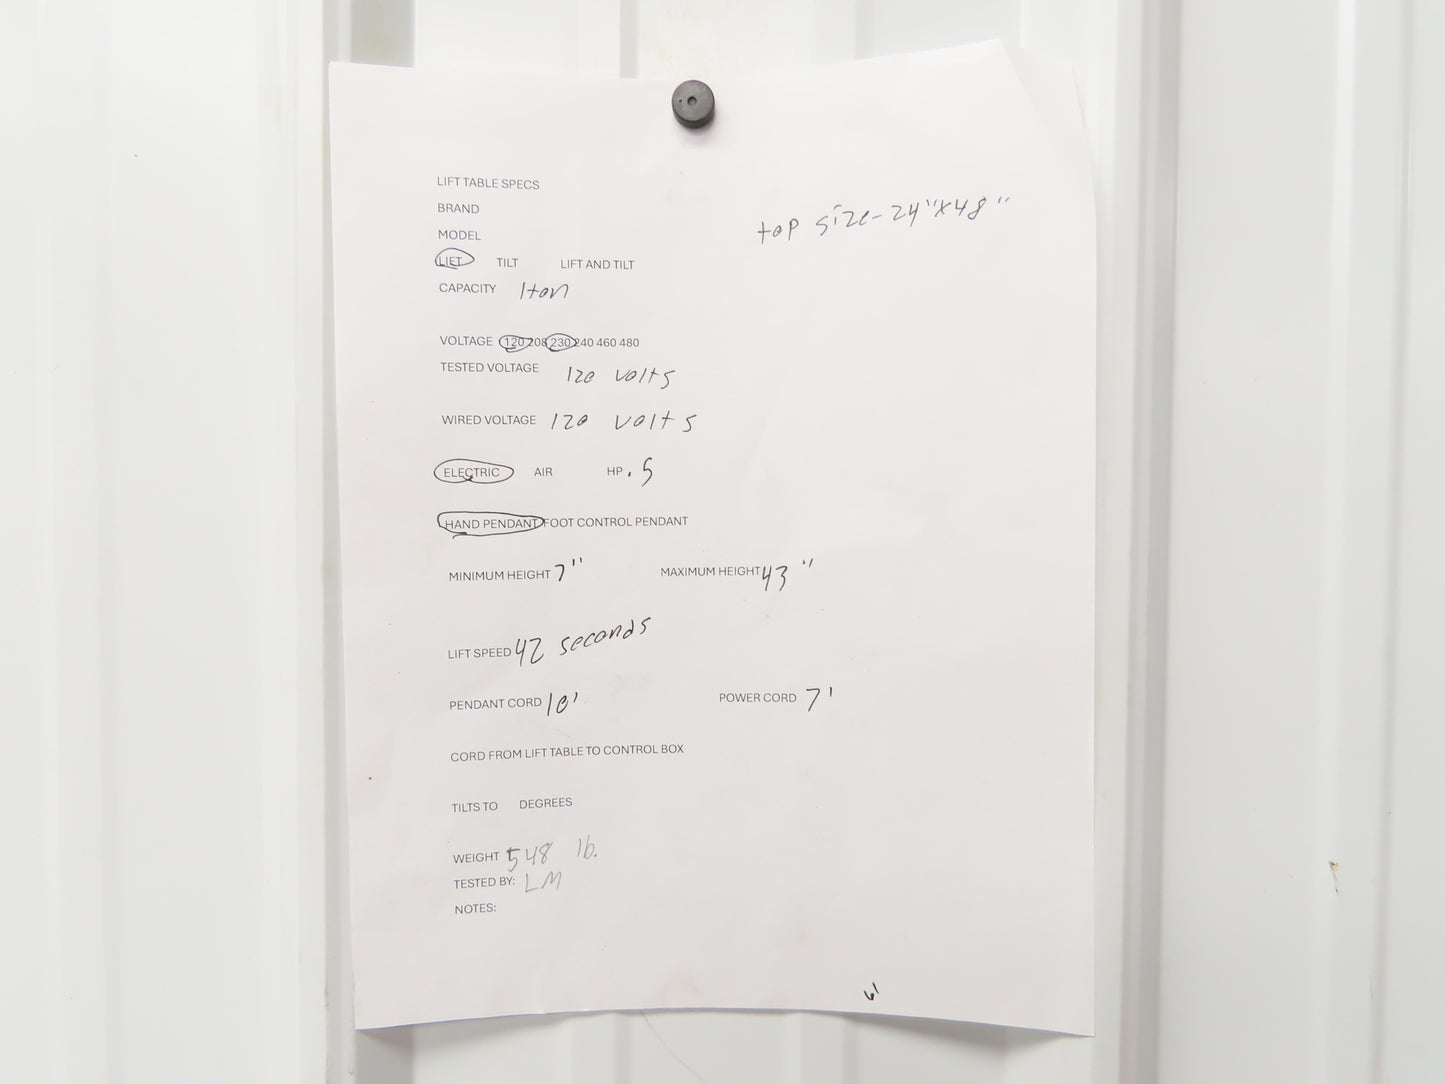 LIFT TABLE SPECS
BRAND
top size - 24" x 48"
MODEL
LIFT TILT LIFT AND TILT
CAPACITY 1 ton
VOLTAGE 120 208 230 240 460 480
TESTED VOLTAGE 120 volts
WIRED VOLTAGE 120 volts
ELECTRIC AIR HP .5
HAND PENDANT FOOT CONTROL PENDANT
MINIMUM HEIGHT 7" MAXIMUM HEIGHT 43"
LIFT SPEED 42 seconds
PENDANT CORD 10' POWER CORD 7'
CORD FROM LIFT TABLE TO CONTROL BOX
TILTS TO DEGREES
WEIGHT 548 lb.
TESTED BY: LM
NOTES: